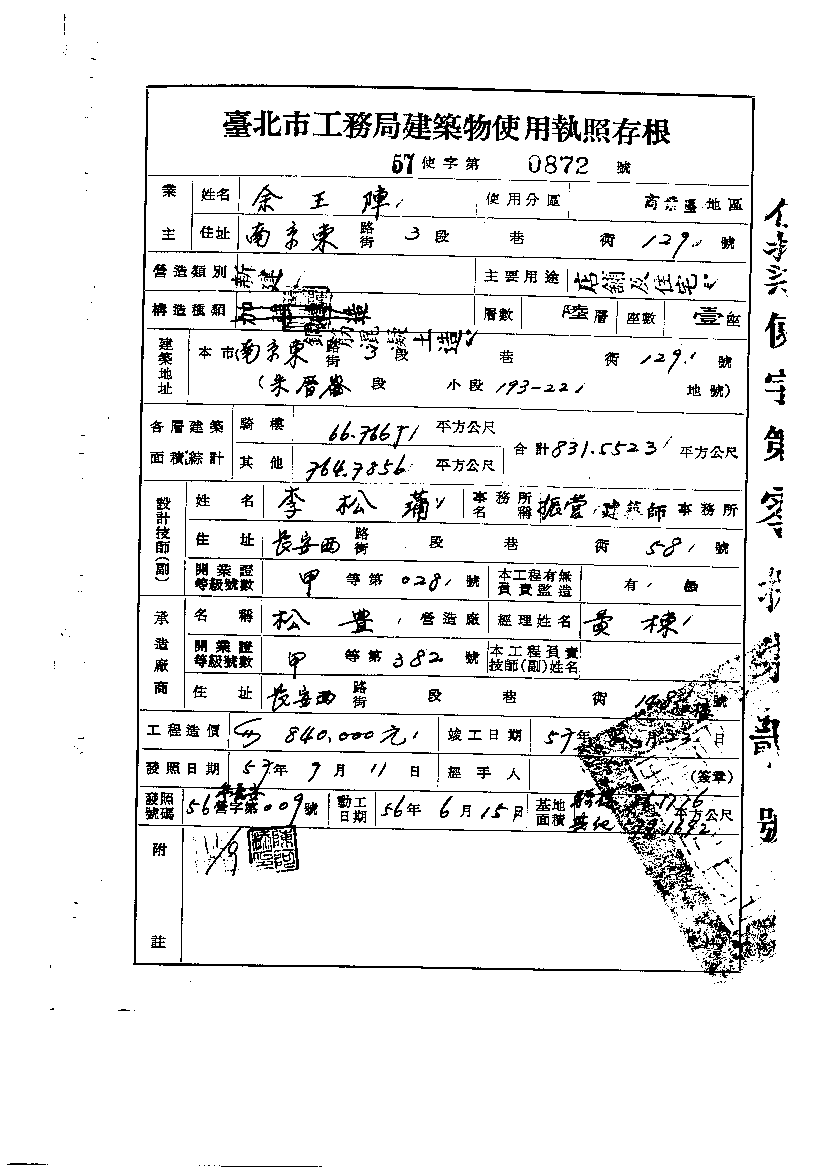 臺北市工務局建築物使用執照存根
57 使字第 0872 號
業主 姓名 余王陣 使用分區 商業區地區
住址 南京東 路街 3 段 巷 衖 129 號
營造類別 新建 主要用途 店舖及住宅
構造種類 鋼筋混凝土造 層數 陸層 座數 壹座
建築地址 本市(南京東 路街 3 段 巷 衖 129 號
(朱厝崙 段 小段 193-22 地號)
各層建築面積綜計 騎樓 66.7667 平方公尺 合計 831.5523 平方公尺
其他 764.7856 平方公尺
設計技師(副) 姓名 李松蒲 事務所名稱 振營建築師 事務所
住址 長安西 路街 段 巷 衖 58 號
開業證等級號數 甲 等第 028 號 本工程有無負責監造 有
承造廠商 名稱 松豊 營造廠 經理姓名 黃棟
開業證等級號數 甲 等第 382 號 本工程負責技師(副)姓名
住址 長安西 路街 段 巷 衖 號
工程造價 840,000元 竣工日期 57年 月 日
發照日期 57年 9月 11日 經手人 (簽章)
發照號碼 56 營字第 009 號 動工日期 56年 6月 15日 基地面積 騎樓 其他 平方公尺
附註 11/9